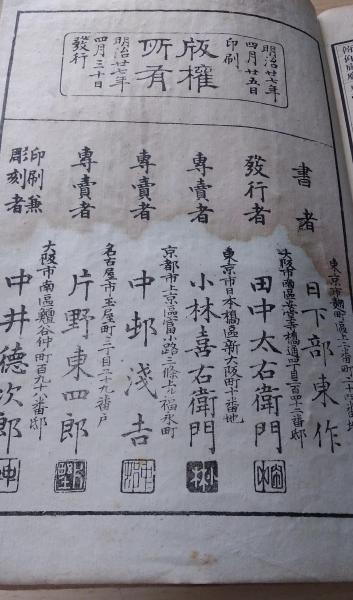 明治廿七年
四月廿五日
印刷
版權
所有
明治廿七年
四月三十日
發行
書者
日下部東作
大阪市南區
發行者
田中太右衛門
東京市日本橋區新大阪町十番地
專賣者
小林喜右衛門
京都市上京區富小路三條上ル福永町
專賣者
中邨淺吉
名古屋市玉屋町三丁目二十九番戶
專賣者
片野東四郎
大阪市南區鰻谷仲ノ町百九十八番邸
印刷兼
彫刻者
中井德次郎